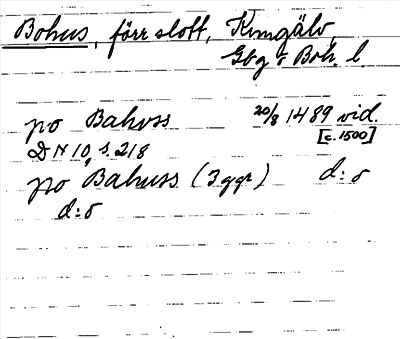 Bohus, förr slott, Kungälv,
Gbg o Boh. l.
po Bahuss 20/8 1489 vid.
[c. 1500]
DN 10, s. 218
po Bahuss (3 ggr) d:o
d:o